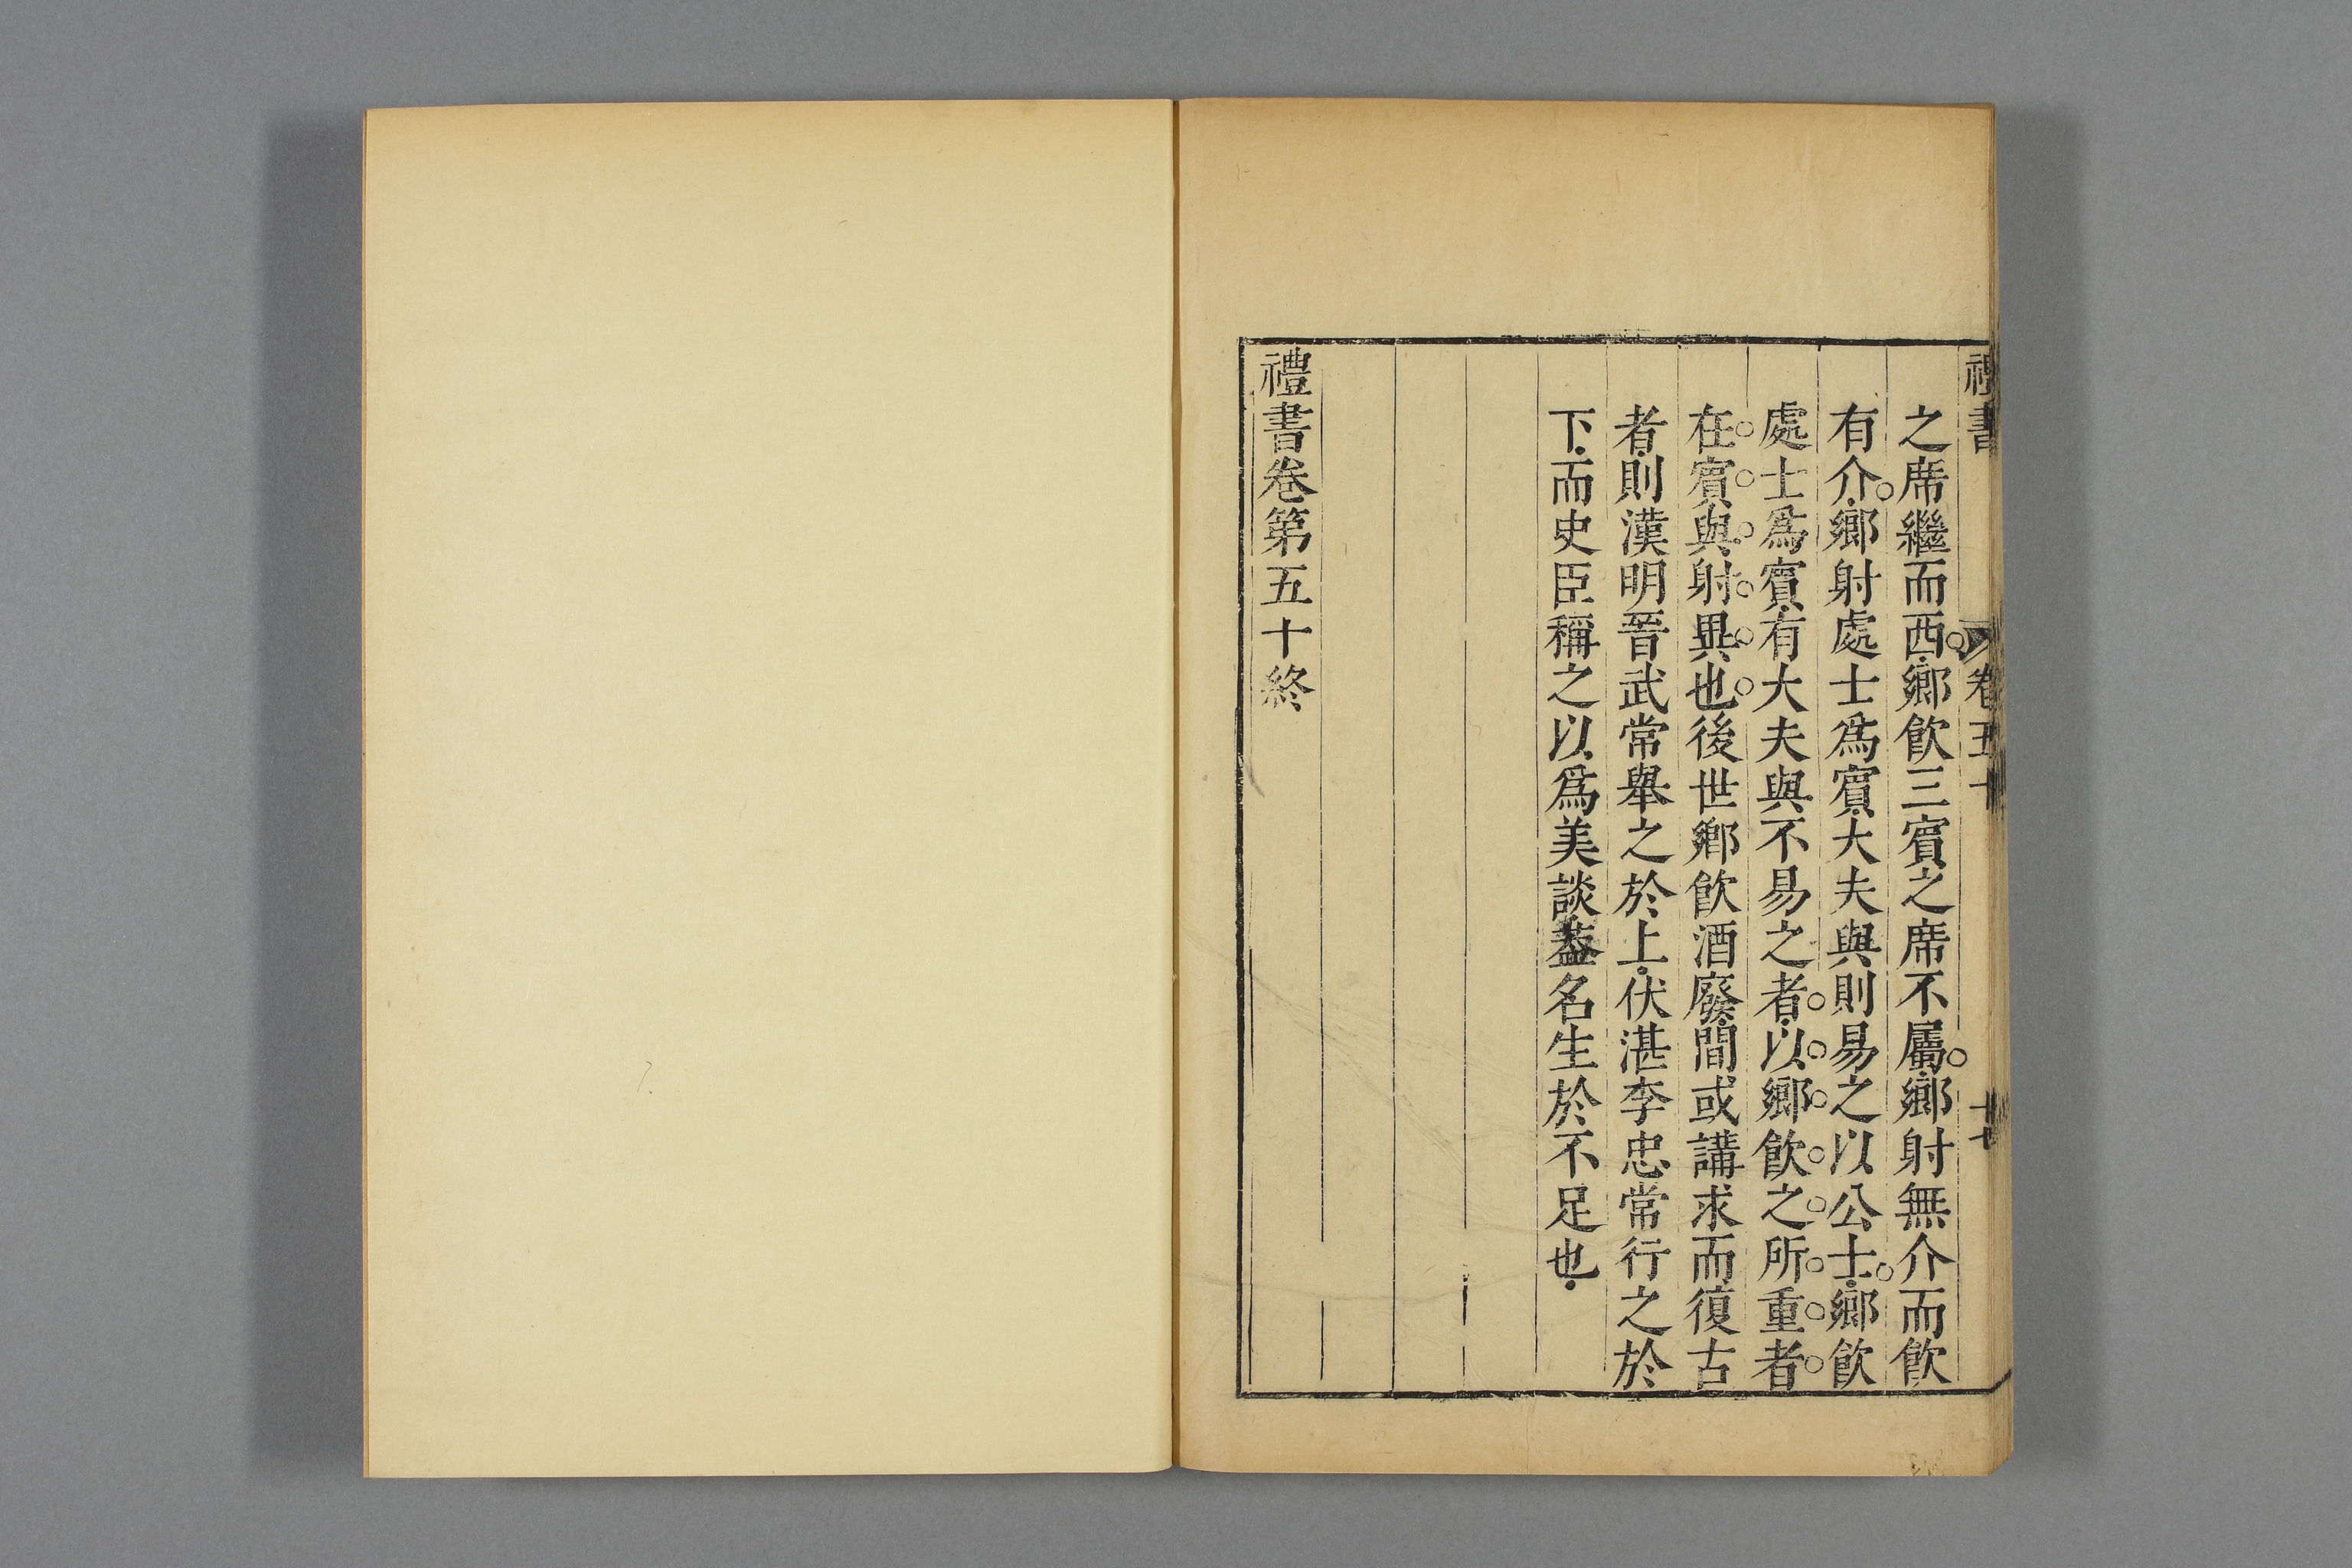 禮書 卷五十 十七
之席繼而西鄉飲三賓之席不屬鄉射無介而飲
有介鄉射處士爲賓大夫與則易之以公士鄉飲
處士爲賓有大夫與不易之者以鄉飲之所重者
在賓與射異也後世鄉飲酒廢間或講求而復古
者則漢明晉武常舉之於上伏湛李忠常行之於
下而史臣稱之以爲美談葢名生於不足也
禮書卷第五十終